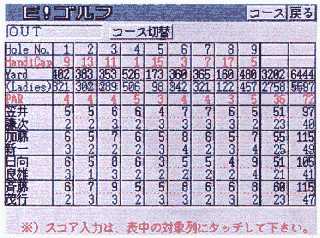 E!ゴルフ コース 戻る
OUT コース切替
Hole No. 1 2 3 4 5 6 7 8 9
HandiCap 9 13 11 1 15 3 7 17 5
Yard 402 383 353 526 173 360 365 160 480 3202 6444
(Ladies) 321 302 289 506 98 342 321 122 457 2758 5587
PAR 4 4 4 5 3 4 4 3 5 36 72
笠井 5 5 6 6 4 7 7 5 6 51 97
謙次 2 2 3 2 3 3 3 2 3 23 40
加藤 6 5 7 6 5 8 6 5 7 55 115
新一 3 2 2 2 3 4 2 3 4 25 49
日向 6 5 8 6 3 5 5 4 9 51 105
良雄 3 1 3 2 2 2 2 2 4 21 41
斉藤 6 7 9 5 5 8 6 6 8 60 115
茂行 2 3 3 2 2 3 2 3 3 23 47
※) スコア入力は、表中の対象列にタッチして下さい。